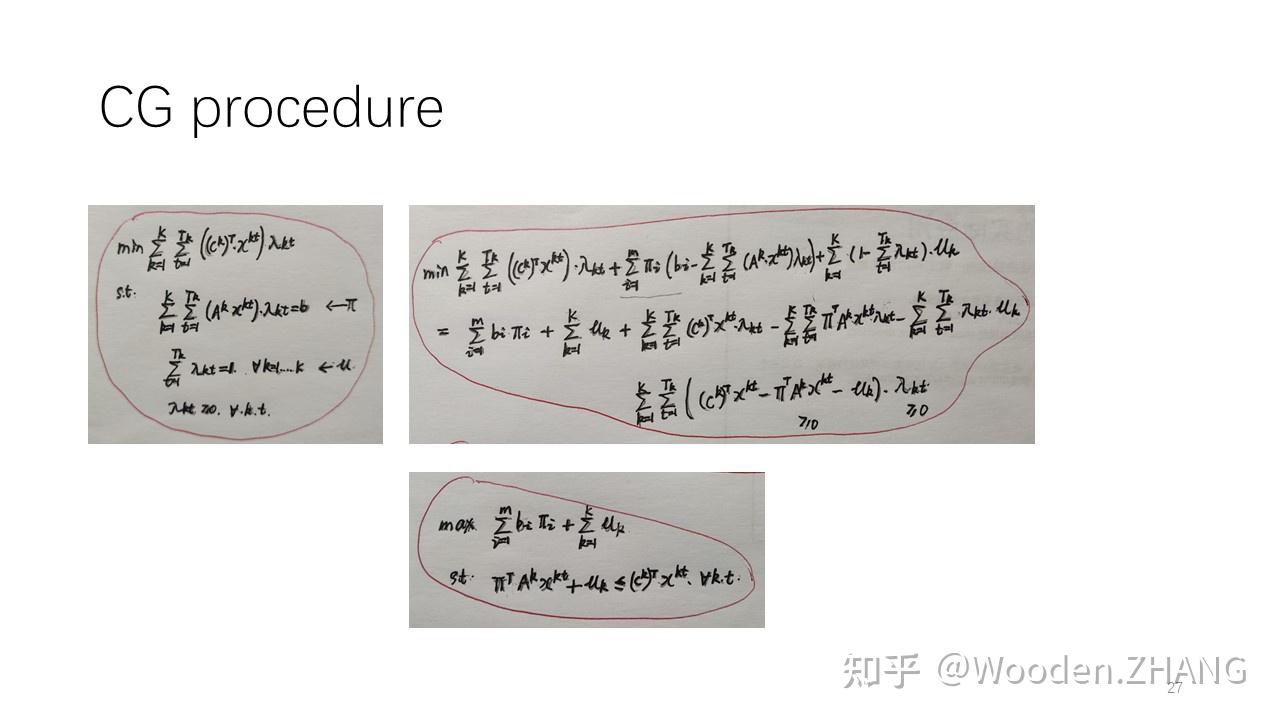 CG procedure
min ∑_{k=1}^{K} ∑_{t=1}^{T_k} ((c^k)^T·x^{kt}) λ_{kt}
s.t.
∑_{k=1}^{K} ∑_{t=1}^{T_k} (A^k x^{kt})·λ_{kt} = b ← π
∑_{t=1}^{T_k} λ_{kt} = 1. ∀k=1,...K ← μ.
λ_{kt} ≥ 0. ∀.k.t.
min ∑_{k=1}^{K} ∑_{t=1}^{T_k} ((c^k)^T x^{kt})·λ_{kt} + ∑_{i=1}^{m} π_i (b_i - ∑_{k=1}^{K} ∑_{t=1}^{T_k} (A^k·x^{kt}) λ_{kt}) + ∑_{k=1}^{K} (1 - ∑_{t=1}^{T_k} λ_{kt})·μ_k
= ∑_{i=1}^{m} b_i π_i + ∑_{k=1}^{K} μ_k + ∑_{k=1}^{K} ∑_{t=1}^{T_k} (c^k)^T x^{kt}·λ_{kt} - ∑_{k=1}^{K} ∑_{t=1}^{T_k} π^T A^k x^{kt} λ_{kt} - ∑_{k=1}^{K} ∑_{t=1}^{T_k} λ_{kt}·μ_k
∑_{k=1}^{K} ∑_{t=1}^{T_k} ((c^k)^T x^{kt} - π^T A^k x^{kt} - μ_k)·λ_{kt}
≥0 ≥0
max ∑_{i=1}^{m} b_i π_i + ∑_{k=1}^{K} μ_k
s.t. π^T A^k x^{kt} + μ_k ≤ (c^k)^T x^{kt}. ∀k.t.
知乎 @Wooden.ZHANG
27